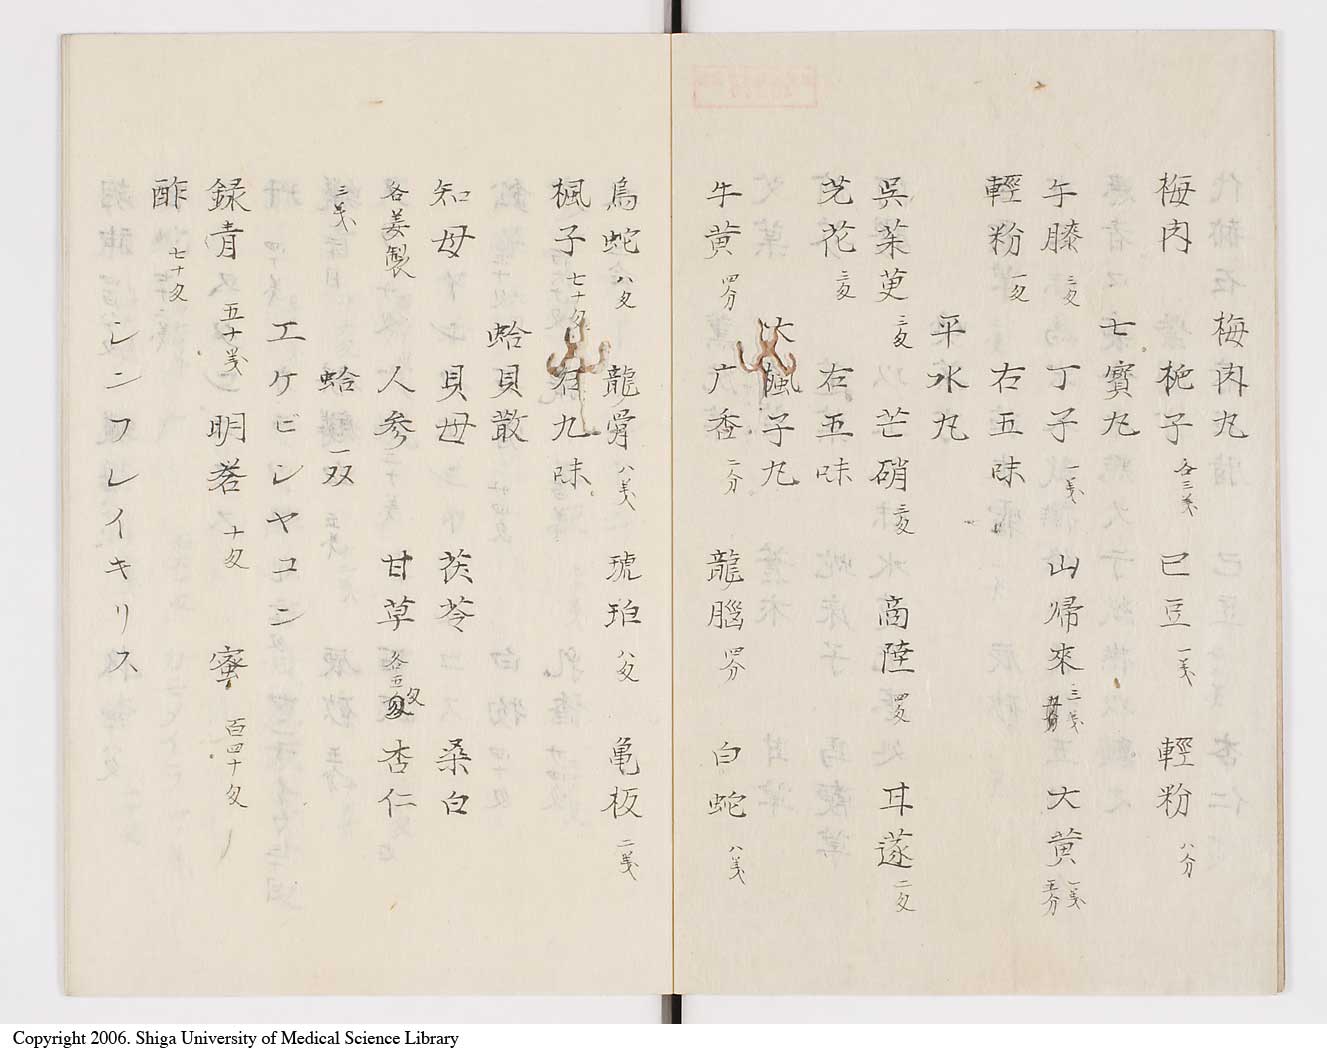 梅肉丸
梅肉 梔子各三戔 巳豆一戔 輕粉八分
七寳丸
午膝三匁 丁子一戔 山帰來三戔 大黄一戔五分
輕粉一匁 右五味
平水丸
呉茱萸三匁 芒硝三匁 商陸四匁 耳遂二匁
芫花三匁 右五味
大楓子丸
牛黄四分 广香二分 龍腦四分 白蛇八戔
烏蛇八匁 龍骨八戔 琥珀八匁 亀板二戔
楓子七十匁 右九味
蛤貝散
知母 貝母 茯苓 桑白
各姜製 人参 甘草各五匁 杏仁
三戔 蛤一双
エケビシヤコン
録青五十戔 明礬十匁 蜜百四十匁
酢七十匁
シンフレイキリス
Copyright 2006. Shiga University of Medical Science Library